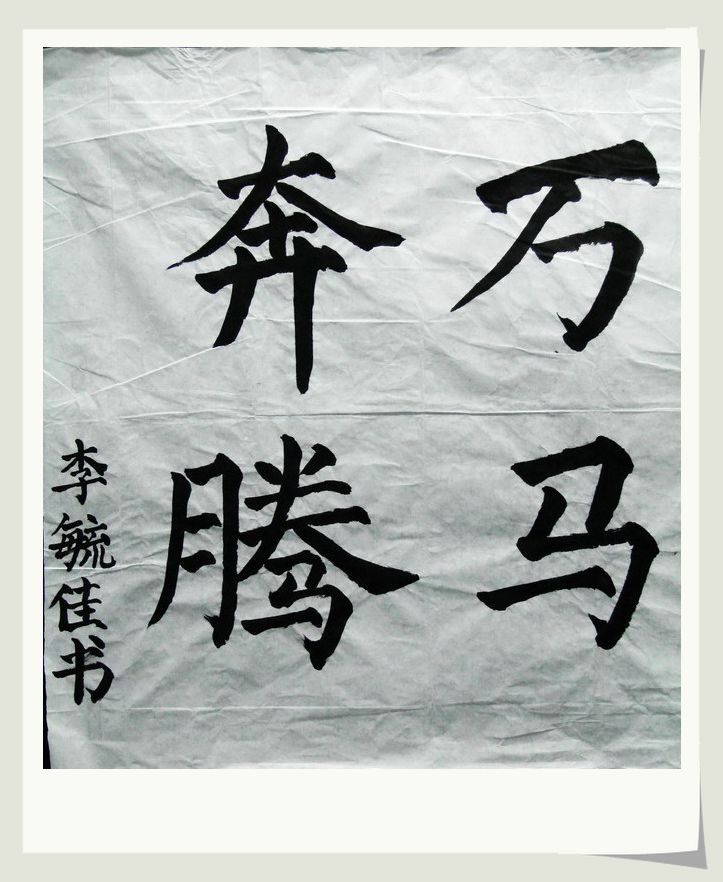 万马
奔腾
李毓佳书